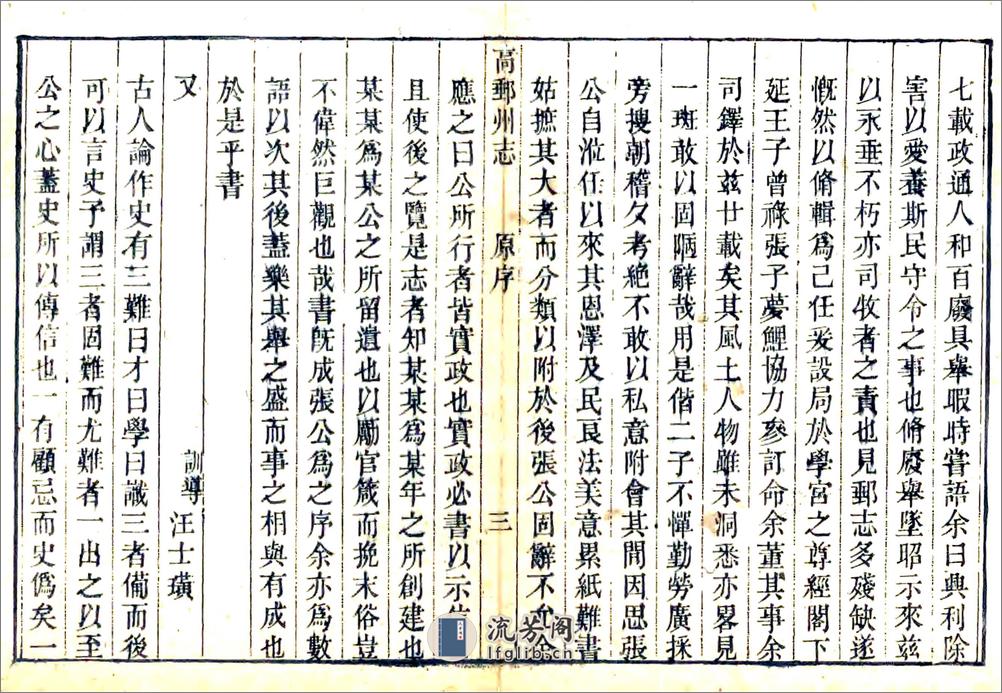 七載政通人和百廢具舉暇時嘗語余曰興利除
害以愛養斯民守令之事也脩廢舉墜昭示來茲
以永垂不朽亦司牧者之責也見郵志多殘缺遂
慨然以脩輯爲己任爰設局於學宮之尊經閣下
延王子曾祿張子夢鯉協力參訂命余董其事余
司鐸於茲廿載矣其風土人物雖未洞悉亦畧見
一斑敢以固陋辭哉用是偕二子不憚勤勞廣採
旁搜朝稽夕考絶不敢以私意附會其間因思張
公自涖任以來其恩澤及民良法美意累紙難書
姑摭其大者而分類以附於後張公固辭不
高郵州志 原序 三
應之曰公所行者皆實政也實政必書以示
且使後之覽是志者知某某爲某年之所創建也
某某爲某公之所留遺也以勵官箴而挽末俗豈
不偉然巨觀也哉書旣成張公爲之序余亦爲數
語以次其後蓋樂其舉之盛而事之相與有成也
於是乎書
又 訓導汪士璜
古人論作史有三難曰才曰學曰識三者備而後
可以言史予謂三者固難而尤難者一出之以至
公之心蓋史所以傳信也一有顧忌而史僞矣一
流芳阁
lfglib.cn